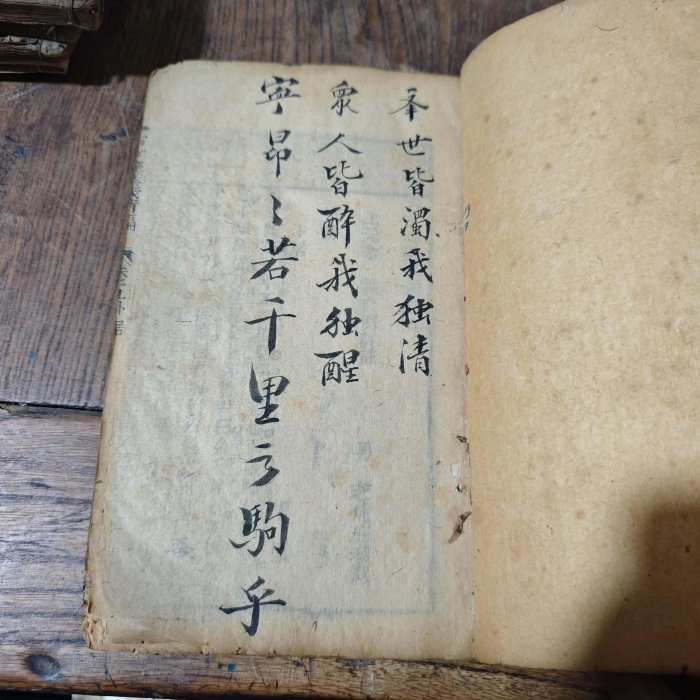 举世皆濁我独清
衆人皆醉我独醒
寧昂〻若千里之駒乎